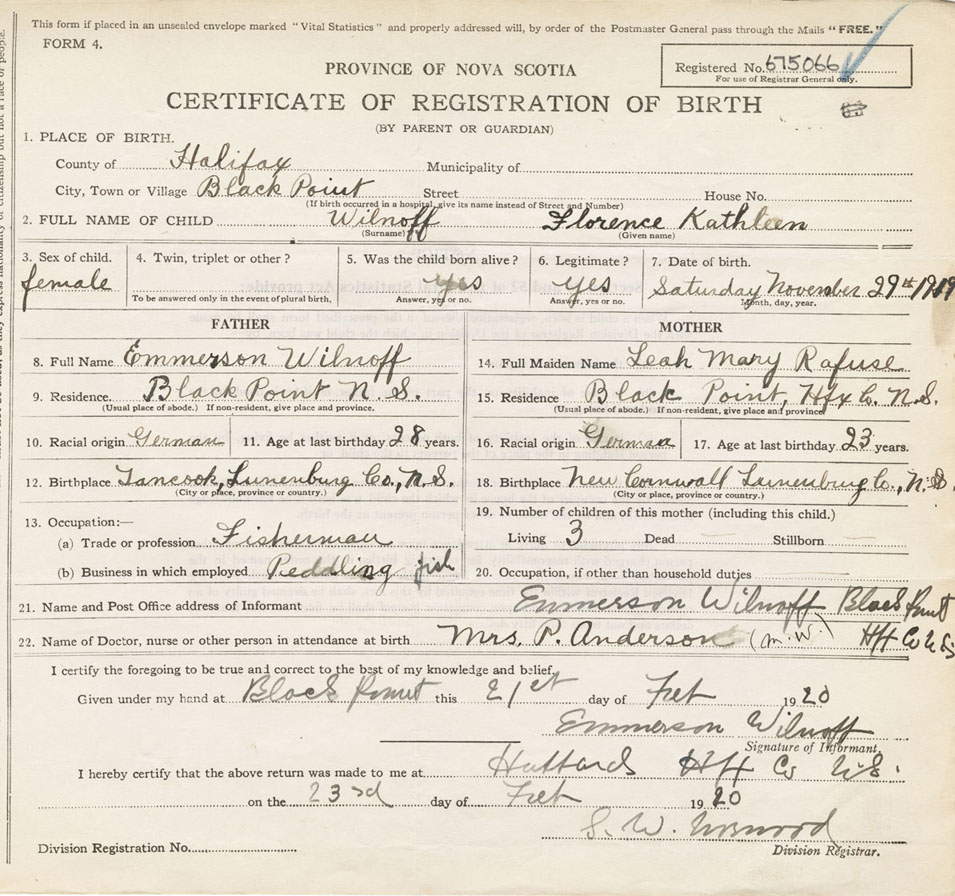 This form if placed in an unsealed envelope marked "Vital Statistics" and properly addressed will, by order of the Postmaster General pass through the Mails "FREE."
FORM 4.
Registered No. 675066
For use of Registrar General only.
PROVINCE OF NOVA SCOTIA
CERTIFICATE OF REGISTRATION OF BIRTH
(BY PARENT OR GUARDIAN)
1. PLACE OF BIRTH.
County of Halifax Municipality of
City, Town or Village Black Point Street House No.
(If birth occurred in a hospital, give its name instead of Street and Number)
2. FULL NAME OF CHILD Wilnoff Florence Kathleen
(Surname) (Given name)
3. Sex of child. 4. Twin, triplet or other? 5. Was the child born alive? 6. Legitimate? 7. Date of birth.
female yes yes Saturday November 29th 1919
To be answered only in the event of plural birth. Answer, yes or no. Answer, yes or no. Month, day, year.
FATHER MOTHER
8. Full Name Emmerson Wilnoff 14. Full Maiden Name Leah Mary Rafuse
9. Residence. Black Point N.S. 15. Residence Black Point, Hfx Co. N.S.
(Usual place of abode.) If non-resident, give place and province. (Usual place of abode.) If non-resident, give place and province
10. Racial origin German 11. Age at last birthday 28 years. 16. Racial origin German 17. Age at last birthday 23 years.
12. Birthplace Tancook, Lunenburg Co., N.S. 18. Birthplace New Cornwall Lunenburg Co., N.S.
(City or place, province or country.) (City or place, province or country.)
13. Occupation:— 19. Number of children of this mother (including this child.)
(a) Trade or profession Fisherman Living 3 Dead — Stillborn —
(b) Business in which employed Peddling fish 20. Occupation, if other than household duties
21. Name and Post Office address of Informant Emmerson Wilnoff Black Point
22. Name of Doctor, nurse or other person in attendance at birth Mrs. P. Anderson (M.W.) Hfx Co N.S.
I certify the foregoing to be true and correct to the best of my knowledge and belief.
Given under my hand at Black Point this 21st day of Feb 1920
Emmerson Wilnoff
Signature of Informant.
I hereby certify that the above return was made to me at Hubbards Hfx Co N.S.
on the 23rd day of Feb 1920
S. W.
Division Registrar.
Division Registration No.